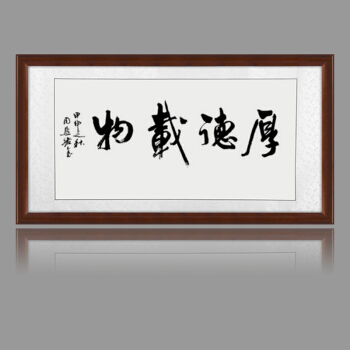 厚德載物
甲申之秋